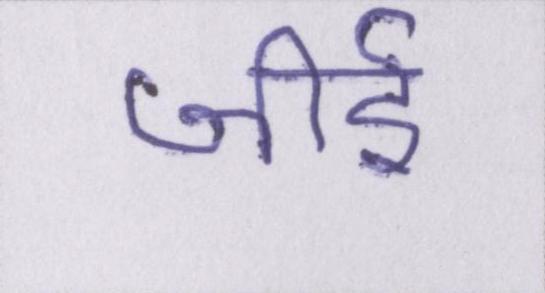 जीई